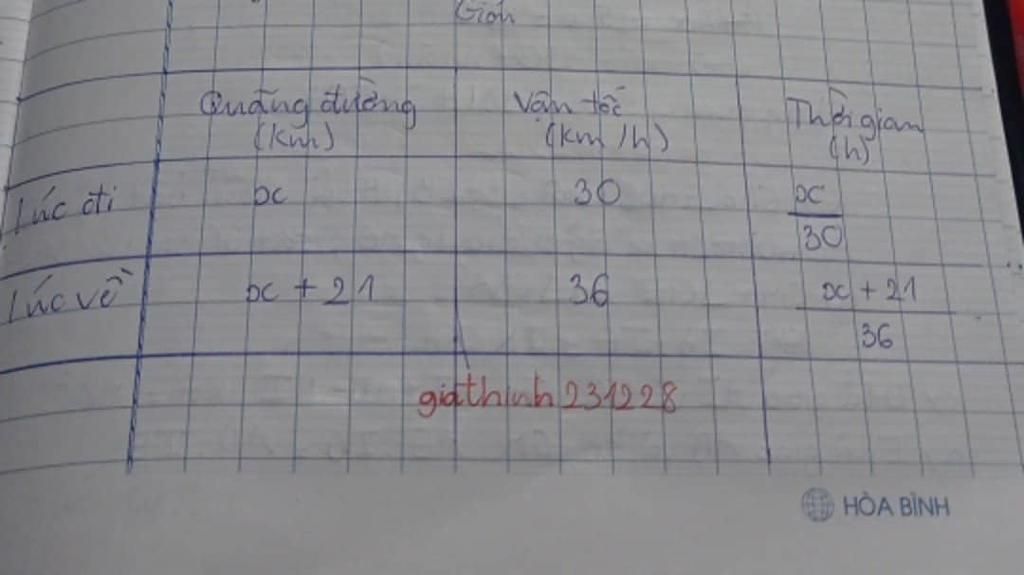 Giải
Quãng đường
(km)
Vận tốc
(km/h)
Thời gian
(h)
Lúc đi
x
30
x
30
Lúc về
x + 21
36
x + 21
36
giathinh231228
HÒA BÌNH